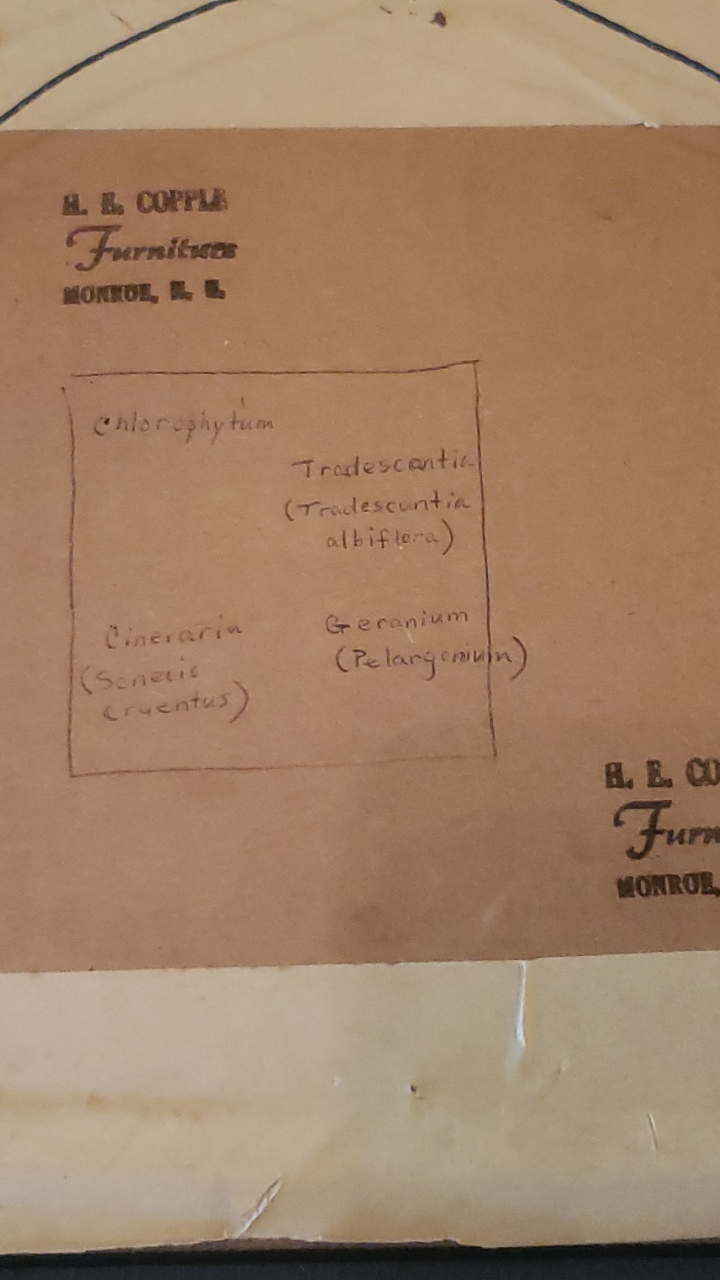 H. E. COPPLE
Furniture
MONROE, N. C.
Chlorophytum
Tradescantia
(Tradescantia
albiflora)
Cineraria
(Senecio
cruentus)
Geranium
(Pelargonium)
H. E. CO
Furn
MONROE,